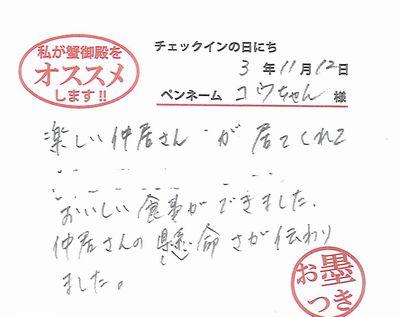 私が蟹御殿を
オススメ
します!!
チェックインの日にち
3 年 11 月 12 日
ペンネーム コウちゃん 様
楽しい仲居さんが居てくれて
おいしい食事ができました。
仲居さんの懸命さが伝わり
ました。
お墨
つき